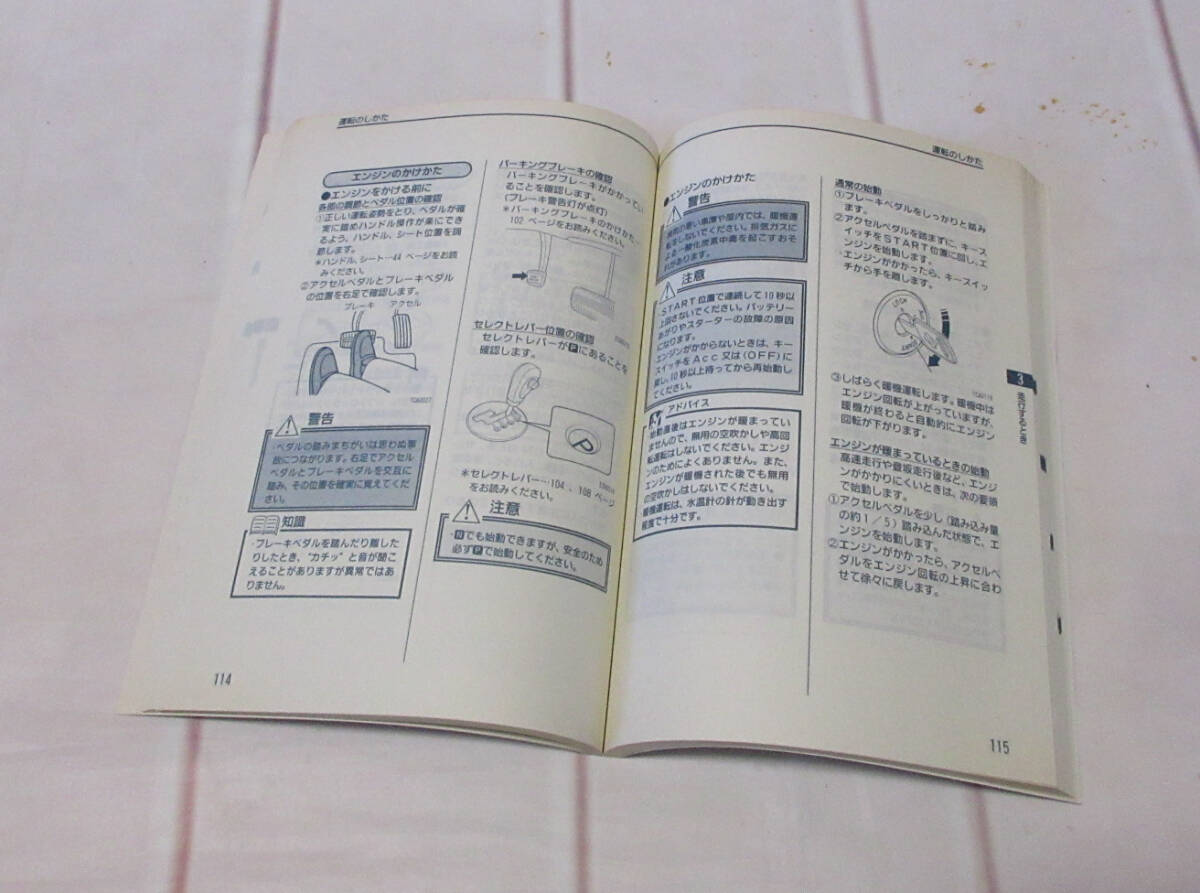 運転のしかた
エンジンのかけかた
●エンジンをかける前に
各部の調節とペダル位置の確認
①正しい運転姿勢をとり、ペダルが確
実に踏めハンドル操作が楽にでき
るよう、ハンドル、シート位置を調
節します。
*ハンドル、シート…44 ページをお読
みください。
②アクセルペダルとブレーキペダル
の位置を右足で確認します。
ブレーキ アクセル
警告
・ペダルの踏みまちがいは思わぬ事
故につながります。右足でアクセル
ペダルとブレーキペダルを交互に
踏み、その位置を確実に覚えてくだ
さい。
知識
・ブレーキペダルを踏んだり離した
りしたとき、“カチッ”と音が聞こ
えることがありますが異常ではあ
りません。
114
パーキングブレーキの確認
パーキングブレーキがかかってい
ることを確認します。
(ブレーキ警告灯が点灯)
*パーキングブレーキのかけかた…
102 ページをお読みください。
セレクトレバー位置の確認
セレクトレバーがPにあることを
確認します。
*セレクトレバー…104 、108 ページ
をお読みください。
注意
・Nでも始動できますが、安全のため
必ずPで始動してください。
運転のしかた
●エンジンのかけかた
警告
の悪い車庫や屋内では、暖機運
転をしないでください。排気ガスに
よる一酸化炭素中毒を起こすおそ
れがあります。
注意
・START位置で連続して10秒以
上回さないでください。バッテリー
あがりやスターターの故障の原因
になります。
エンジンがかからないときは、キー
スイッチをAcc又は(OFF)に
戻し、10秒以上待ってから再始動し
てください。
アドバイス
・始動直後はエンジンが暖まってい
ませんので、無用の空吹かしや高回
転運転はしないでください。エンジ
ンのためによくありません。また、
エンジンが暖機された後でも無用
の空吹かしはしないでください。
暖機運転は、水温計の針が動き出す
程度で十分です。
通常の始動
①ブレーキペダルをしっかりと踏み
ます。
②アクセルペダルを踏まずに、キース
イッチをSTART位置に回し、エ
ンジンを始動します。
エンジンがかかったら、キースイッ
チから手を離します。
LOCK
START
③しばらく暖機運転します。暖機中は
エンジン回転が上がっていますが、
暖機が終わると自動的にエンジン
回転が下がります。
エンジンが暖まっているときの始動
高速走行や登坂走行後など、エンジ
ンがかかりにくいときは、次の要領
で始動します。
①アクセルペダルを少し(踏み込み量
の約1/5)踏み込んだ状態で、エ
ンジンを始動します。
②エンジンがかかったら、アクセルペ
ダルをエンジン回転の上昇に合わ
せて徐々に戻します。
3
走行するとき
115